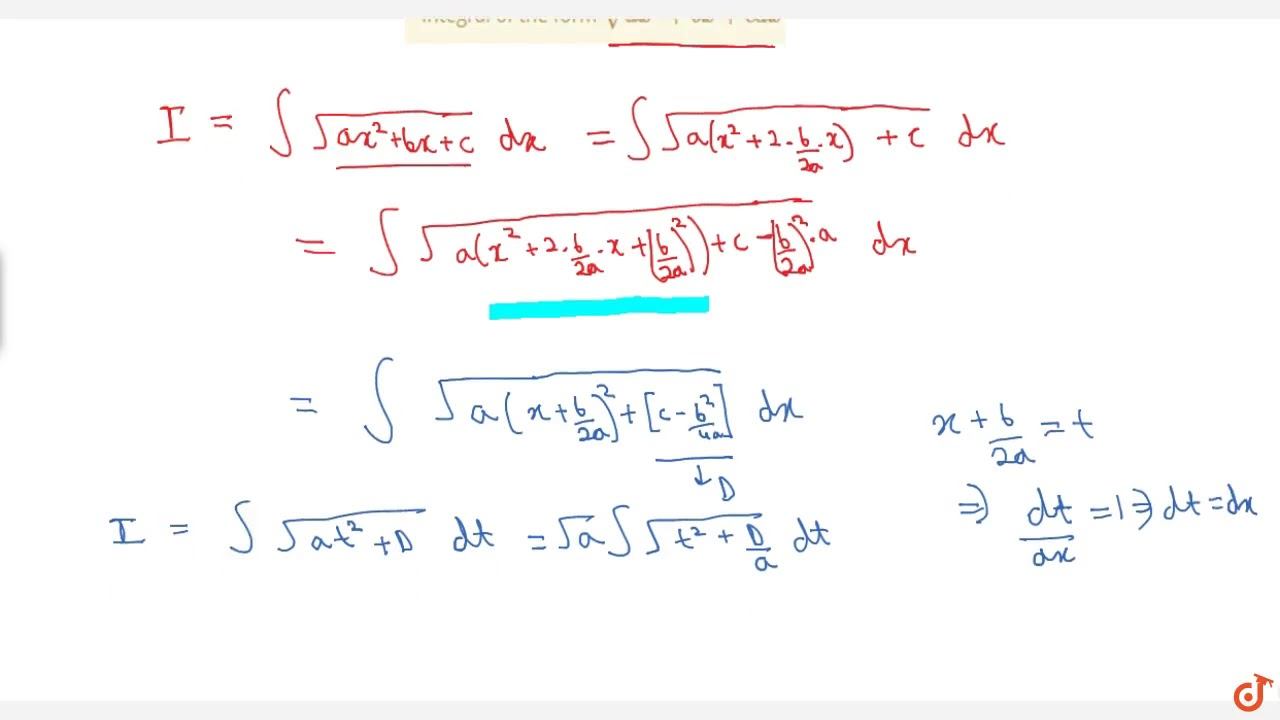 I = ∫ √(ax²+bx+c) dx = ∫ √(a(x² + 2·b/2a·x) + c) dx
= ∫ √(a(x² + 2·b/2a·x + (b/2a)²) + c - (b/2a)²·a) dx
= ∫ √(a(x + b/2a)² + [c - b²/4a]) dx
↓ D
x + b/2a = t
⇒ dt/dx = 1 ⇒ dt = dx
I = ∫ √(at² + D) dt = √a ∫ √(t² + D/a) dt